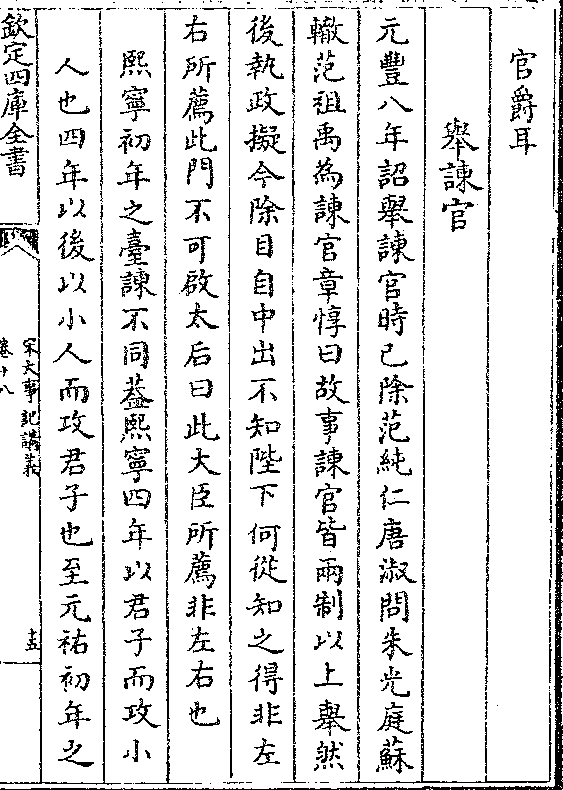 官爵耳
舉諫官
元豐八年詔舉諫官時已除范純仁唐淑問朱光庭蘇
轍范祖禹為諫官章惇曰故事諫官皆兩制以上舉然
後執政擬今除目自中出不知陛下何從知之得非左
右所薦此門不可啟太后曰此大臣所薦非左右也
熙寧初年之臺諫不同葢熙寧四年以君子而攻小
人也四年以後以小人而攻君子也至元祐初年之
欽定四庫全書
宋大事記講義
卷十八
十五